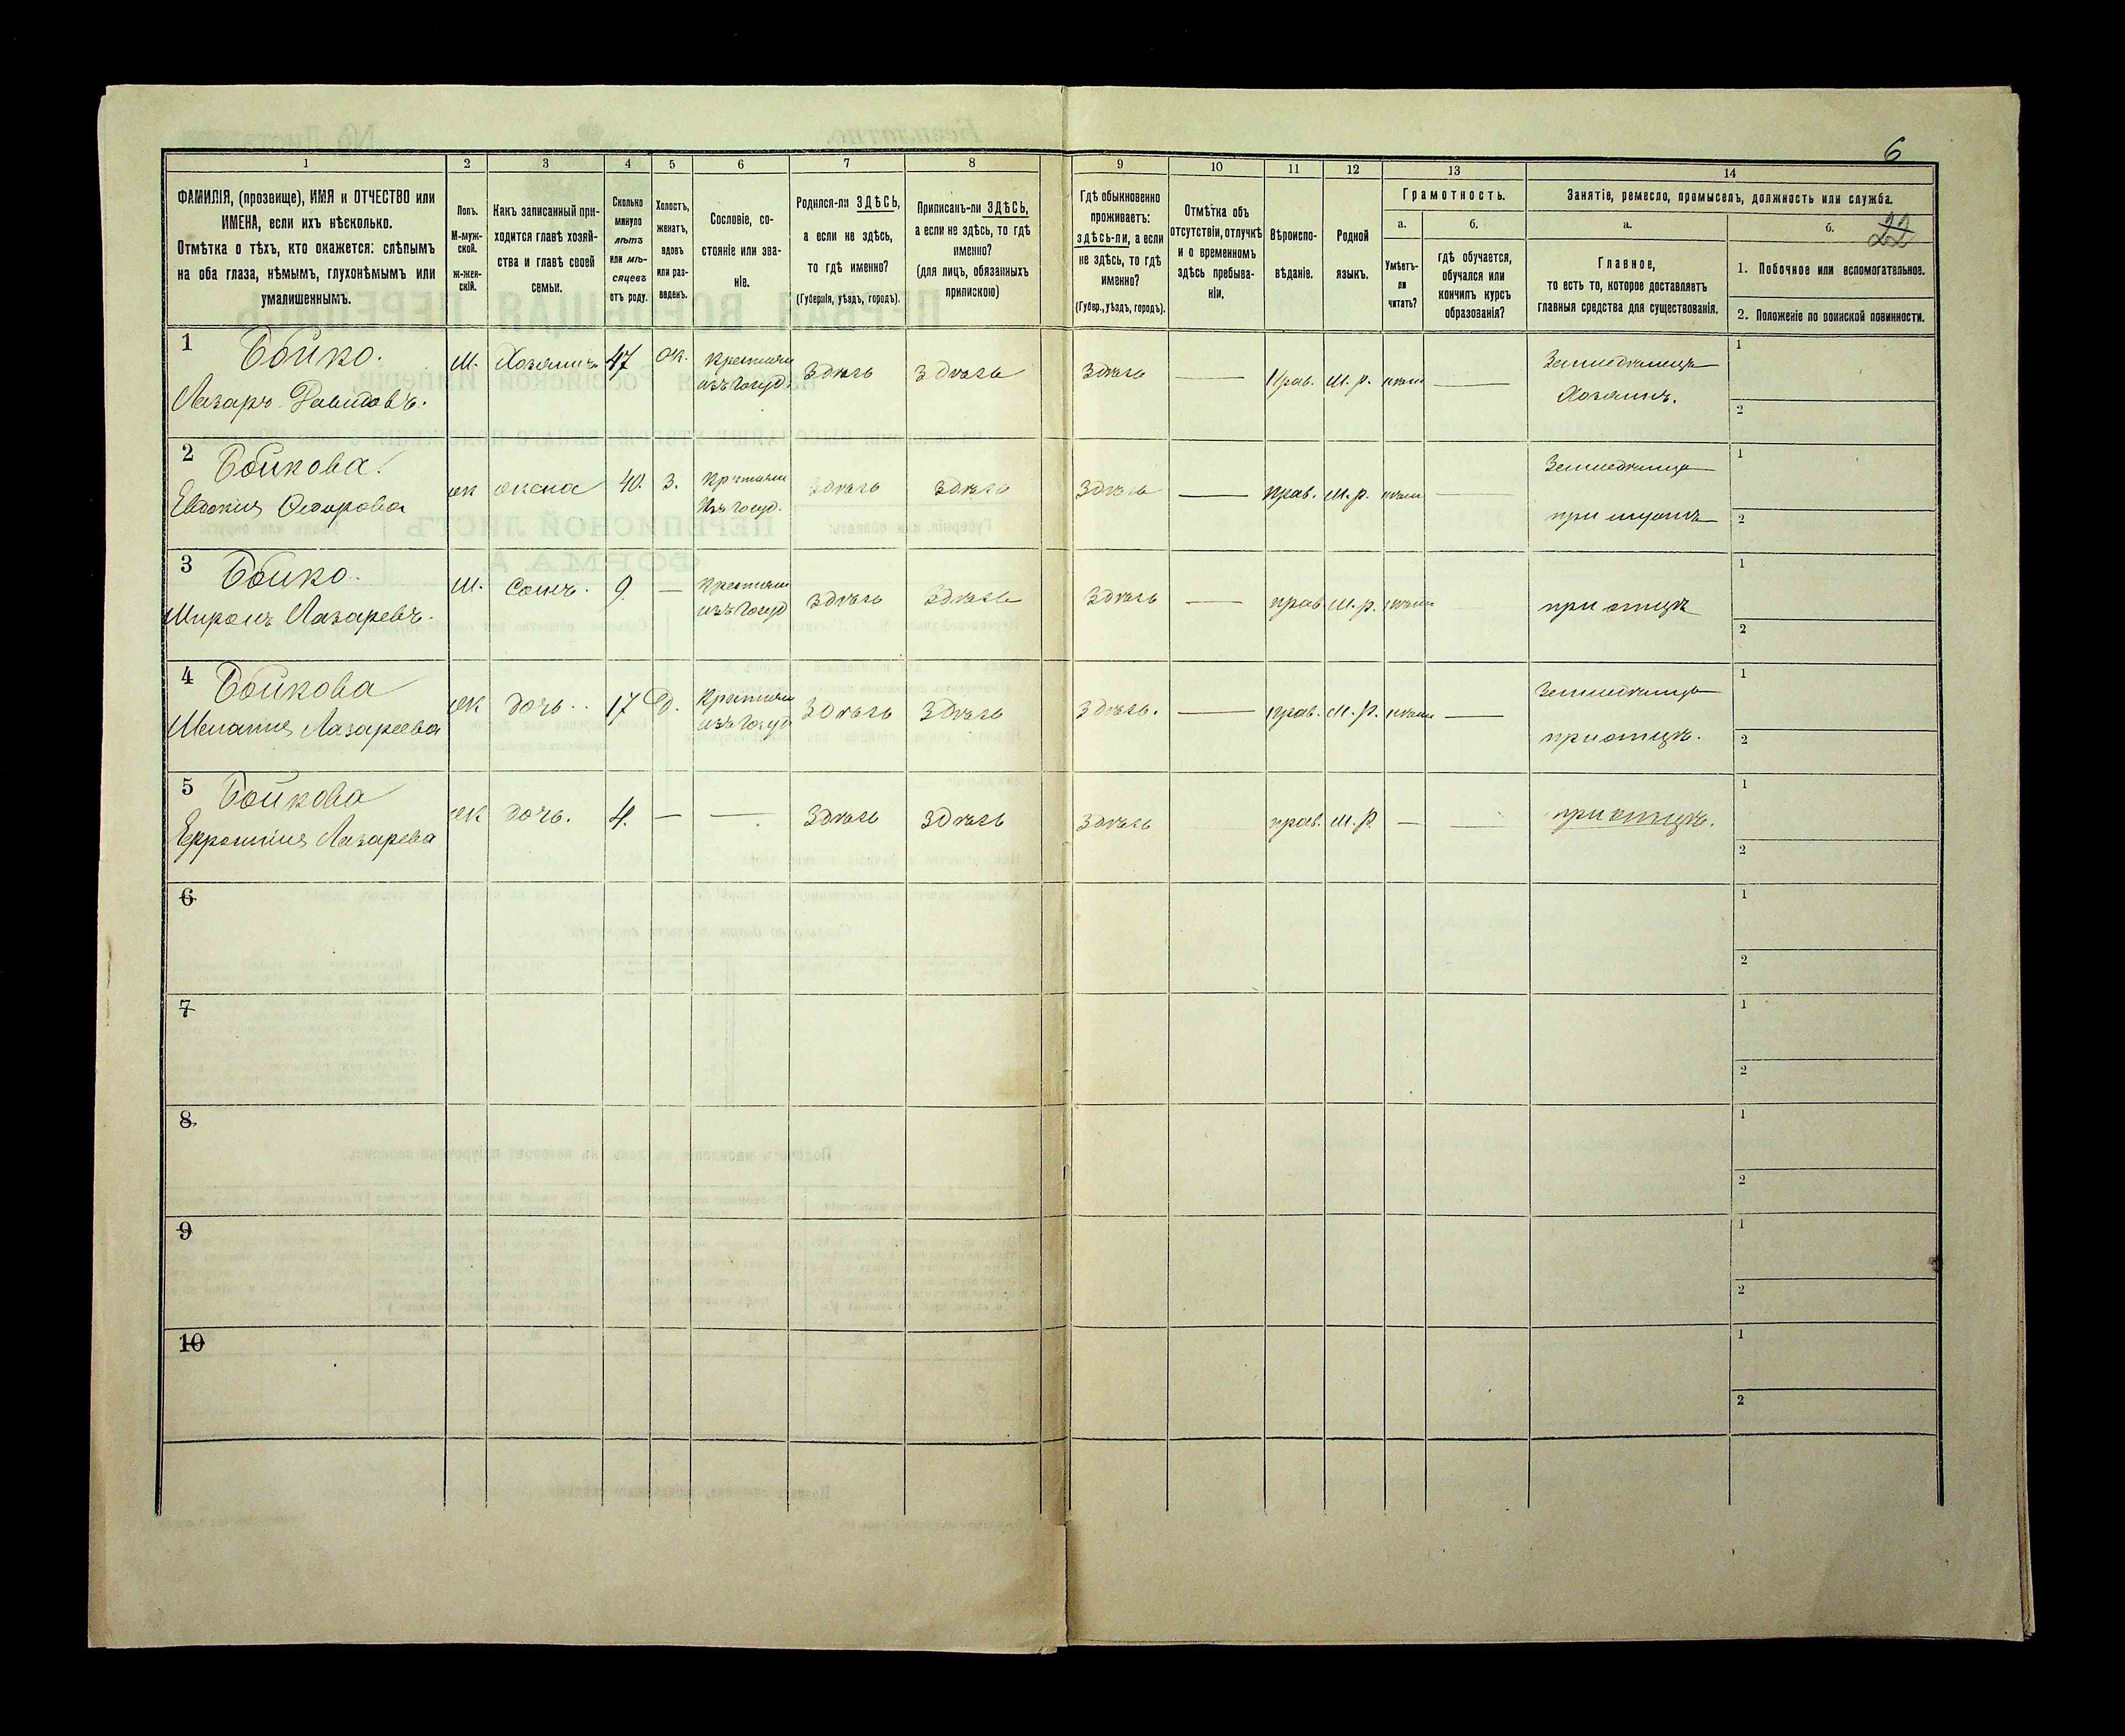 6
1 2 3 4 5 6 7 8 9 10 11 12 13 14
ФАМИЛІЯ, (прозвище), ИМЯ и ОТЧЕСТВО или
ИМЕНА, если ихъ нѣсколько.
Отмѣтка о тѣхъ, кто окажется: слѣпымъ
на оба глаза, нѣмымъ, глухонѣмымъ или
умалишеннымъ.
Полъ.
М-муж-
ской.
ж-жен-
скій.
Какъ записанный при-
ходится главѣ хозяй-
ства и главѣ своей
семьи.
Сколько
минуло
лѣтъ
или мѣ-
сяцевъ
отъ роду.
Холостъ,
женатъ,
вдовъ
или раз-
веденъ.
Сословіе, со-
стояніе или зва-
ніе.
Родился-ли ЗДѢСЬ,
а если не здѣсь,
то гдѣ именно?
(Губернія, уѣздъ, городъ).
Приписанъ-ли ЗДѢСЬ,
а если не здѣсь, то гдѣ
именно?
(для лицъ, обязанныхъ
припискою)
Гдѣ обыкновенно
проживаетъ:
здѣсь-ли, а если
не здѣсь, то гдѣ
именно?
(Губер., уѣздъ, городъ).
Отмѣтка объ
отсутствіи, отлучкѣ
и о временномъ
здѣсь пребыва-
ніи.
Вѣроиспо-
вѣданіе.
Родной
языкъ.
Грамотность.
а.
Умѣетъ-
ли
читать?
б.
гдѣ обучается,
обучался или
кончилъ курсъ
образованія?
Занятіе, ремесло, промыселъ, должность или служба.
а.
Главное,
то есть то, которое доставляетъ
главныя средства для существованія.
б. 22
1. Побочное или вспомогательное.
2. Положеніе по воинской повинности.
1 Бойко.
Лазарь Давидовъ.
М. Хозяинъ 47 ж. Крестьян
изъ госуд. здѣсь здѣсь здѣсь — Прав. М. р. нѣтъ —
Земледѣлецъ
Хозяинъ.
1
2
2 Бойкова.
Евдокия Федорова
ж жена 40. З. Крестьян
изъ госуд. здѣсь здѣсь здѣсь — прав. М. р. нѣтъ —
Земледѣлица
при мужѣ
1
2
3 Бойко.
Миронъ Лазаревъ.
М. Сынъ. 9. — Крестьян
изъ госуд здѣсь здѣсь здѣсь — прав М. р. нѣтъ
при отцѣ
1
2
4 Бойкова
Мелания Лазарева
ж дочь. 17 Д. Крестьян
изъ госуд здѣсь здѣсь здѣсь. — прав. М. р. нѣтъ —
Земледѣлица
при отцѣ.
1
2
5 Бойкова
Лазарева
ж дочь. 4. — — здѣсь здѣсь здѣсь прав. М. р. — —
при отцѣ.
1
2
6
1
2
7
1
2
8
1
2
9
1
2
10
1
2